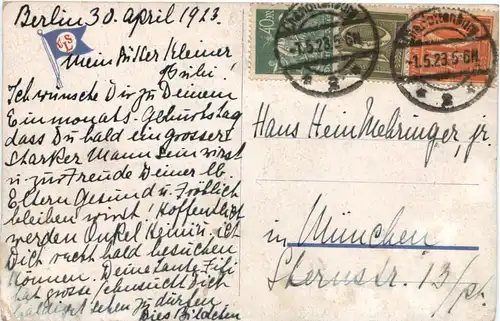 Berlin 30. April 1923.
Mein süsser kleiner
Ich wünsche Dir zu Deinem
Einmonats-Geburtstag
dass Du bald ein grosser
starker Mann sein wirst
u. zur Freude Deiner lb.
Eltern Gesund u. Fröhlich
bleiben wirst! Hoffentlich
werden Onkel u. ich
Dich recht bald besuchen
können. Deine Tante Fifi
hat grosse Sehnsucht Dich
baldigst sehen zu dürfen.
Dies Bildchen
40
Charlottenburg
-1.5.23 5-6N
* 2 *
Charlottenburg
-1.5.23 5-6N
* 2 *
Hans Hein Mehringer, jr.
in München
Sternstr. 13/pt.